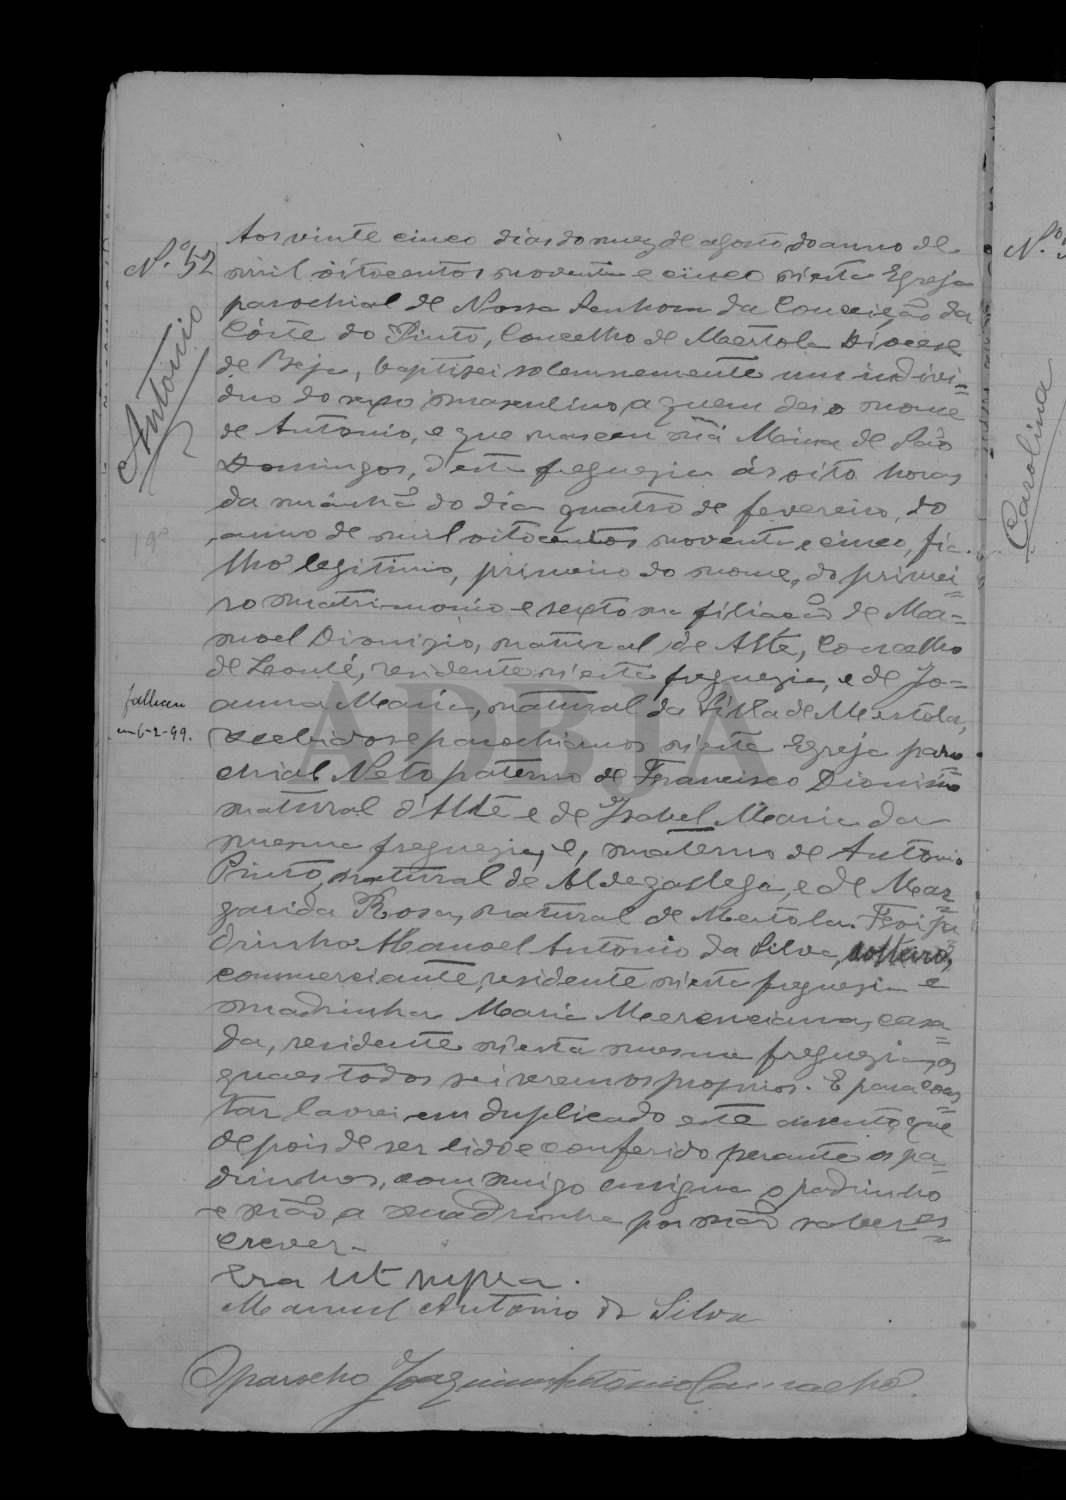 Nº 52
Antonio
Aos vinte cinco dias do mez de agosto do anno de
mil oitocentos noventa e cinco n'esta Egreja
parochial de Nossa Senhora da Conceição da
Côrte do Pinto, Concelho de Mertola Diocese
de Beja, baptisei solemnemente um indivi=
duo do sexo masculino a quem dei o nome
de Antonio, e que nasceu na Mina de São
Domingos, d'esta freguezia ás oito horas
da manhã do dia quatro de fevereiro, do
anno de mil oitocentos noventa e cinco, fi=
lho legitimo, primeiro do nome, do primei=
ro matrimonio e sexto na filiação de Ma=
noel Dionizio, natural de Alte, Concelho
de Loulé, residente n'esta freguezia, e de Jo=
anna Maria, natural da Villa de Mertola,
recebidos e parochianos n'esta Egreja paro
chial Neto paterno de Francisco Dionisio
natural d'Alte e de Isabel Maria da
mesma freguezia, e, materno de Antonio
Pinto, natural de Aldegallega, e de Mar=
garida Rosa, natural de Mertola. Foi pa
drinho Manoel Antonio da Silva, solteiro,
commerciante, residente n'esta freguezia e
madrinha Maria Merenciana, casa=
da, residente n'esta mesma freguezia, os
quaes todos sei serem os proprios. E para cons=
tar lavrei em duplicado este assento, que
depois de ser lido e conferido perante os pa=
drinhos, commigo assigna o padrinho
e não a madrinha por não saber es=
crever.
Era ut supra.
Manuel Antonio da Silva
O parocho Joaquim Antonio Carvalho.
falleceu
em 6-2-99.
Nº
Carolina
ADBJA